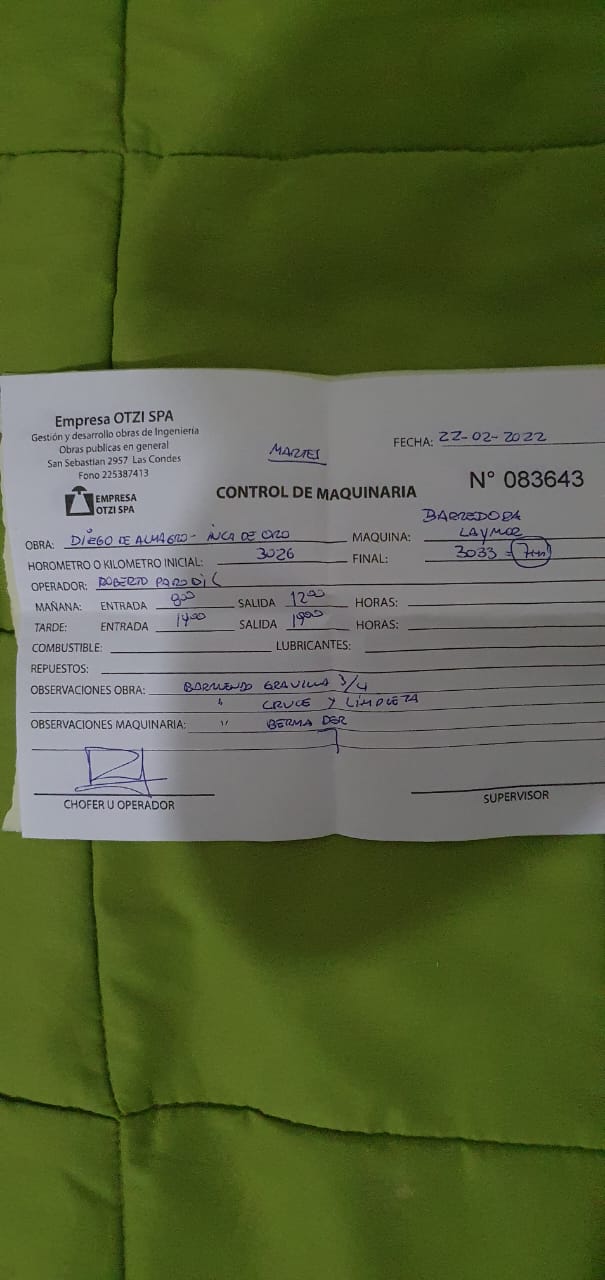 Empresa OTZI SPA
Gestión y desarrollo obras de Ingenieria
Obras publicas en general
San Sebastian 2957 Las Condes
Fono 225387413
EMPRESA
OTZI SPA
MARTES
FECHA: 22-02-2022
CONTROL DE MAQUINARIA
N° 083643
OBRA: DIEGO DE ALMAGRO - INCA DE ORO
MAQUINA: BARREDORA
LAYMOR
HOROMETRO O KILOMETRO INICIAL: 3026
FINAL: 3033 =
OPERADOR: ROBERTO PARODI
MAÑANA: ENTRADA 8:00 SALIDA 12:00 HORAS:
TARDE: ENTRADA 14:00 SALIDA 19:00 HORAS:
COMBUSTIBLE: LUBRICANTES:
REPUESTOS:
OBSERVACIONES OBRA: BARRIENDO GRAVILLA 3/4
" CRUCE Y LIMPIEZA
OBSERVACIONES MAQUINARIA: " BERMA DER
CHOFER U OPERADOR
SUPERVISOR